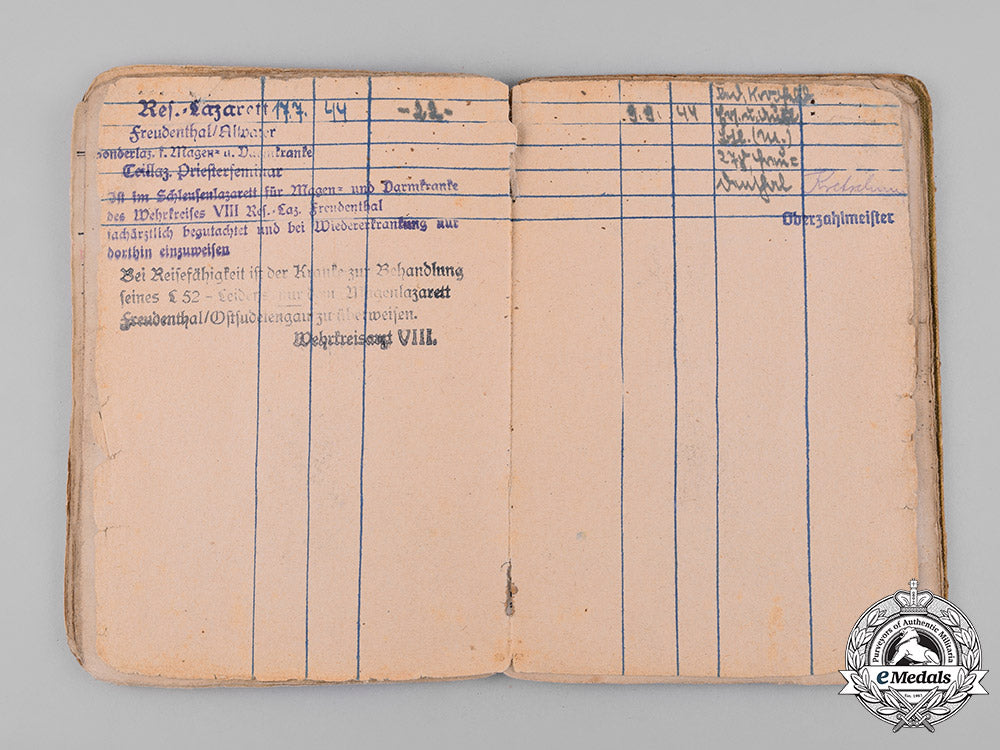 Res.-Lazarett 17.7. 44 -22-
Freudenthal/Altvater
Sonderlaz. f. Magen- u. Darmkranke
Teillaz. Priesterseminar
Ist im Schleusenlazarett für Magen- und Darmkranke
des Wehrkreises VIII Res.-Laz. Freudenthal
fachärztlich begutachtet und bei Wiedererkrankung nur
dorthin einzuweisen
Bei Reisefähigkeit ist der Kranke zur Behandlung
seines L 52 - Leidens nur dem Magenlazarett
Freudenthal/Ostsudetengau zu überweisen.
Wehrkreisarzt VIII.
9.9. 44
Oberzahlmeister
Purveyors of Authentic Militaria
eMedals